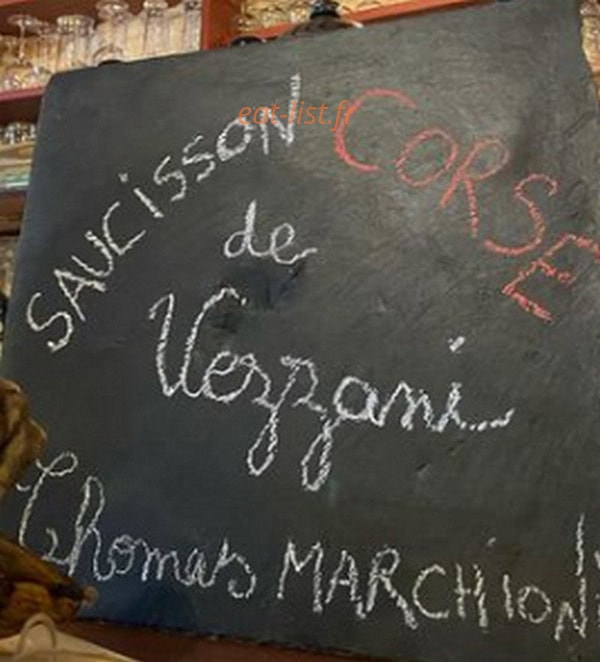 SAUCISSON CORSE
eat-list.fr
de
Vezzani
Thomas MARCHIONI